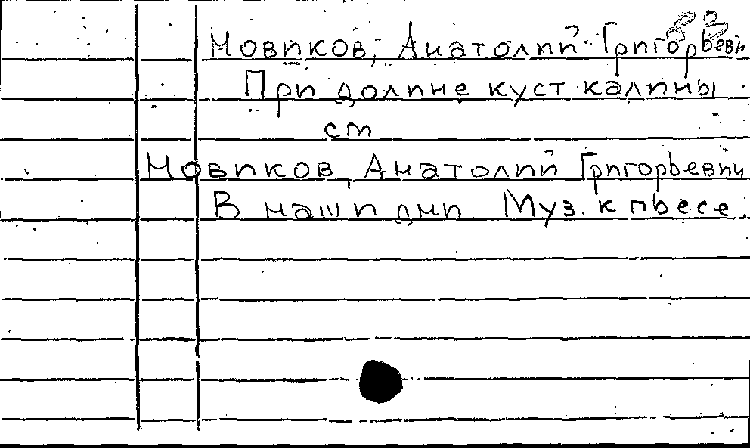 Новиков, Анатолий Григорьеви
При долине куст калины
см
Новиков, Анатолий Григорьевич
В наши дни Муз. к пьесе